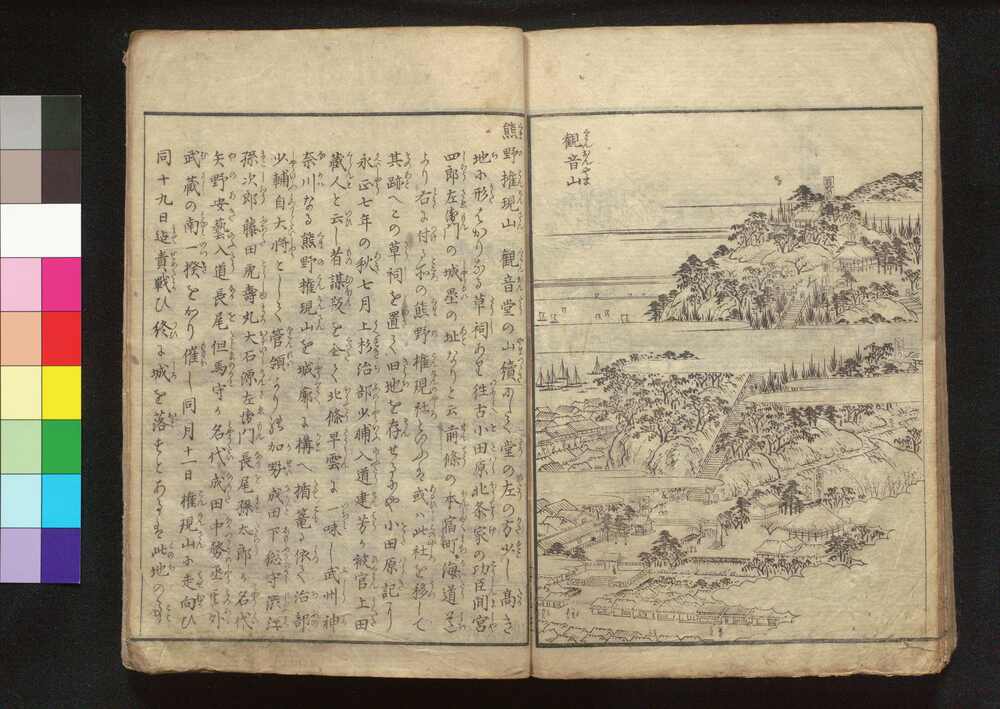 観音山
熊野権現山 観音堂の山續にて堂の左の方少し高き
地に形ばかりなる草祠あり往古小田原北条家の功臣間宮
四郎左衛門の城塁の址なりと云前條の本宿町海道
より右に付て の熊野権現社といふは或ハ此社を移して
其跡へこの草祠を置て旧地を存せるにや小田原記に
永正七年の秋七月上杉治部少輔入道建芳が被官上田
蔵人と云し者謀叛を企て北條早雲に一味し武州神
奈川なる熊野権現山を城郭に構へ楯篭る依て治部
少輔自大将として管領よりも加勢成田下総守渋江
孫次郎藤田虎壽丸大石源左衛門長尾孫太郎が名代
矢野安藝入道長尾但馬守が名代成田中務丞其外
武蔵の南一揆をかり催し同月十一日権現山に走向ひ
同十九日迄責戦ひ終に城を落すとあるは此地の